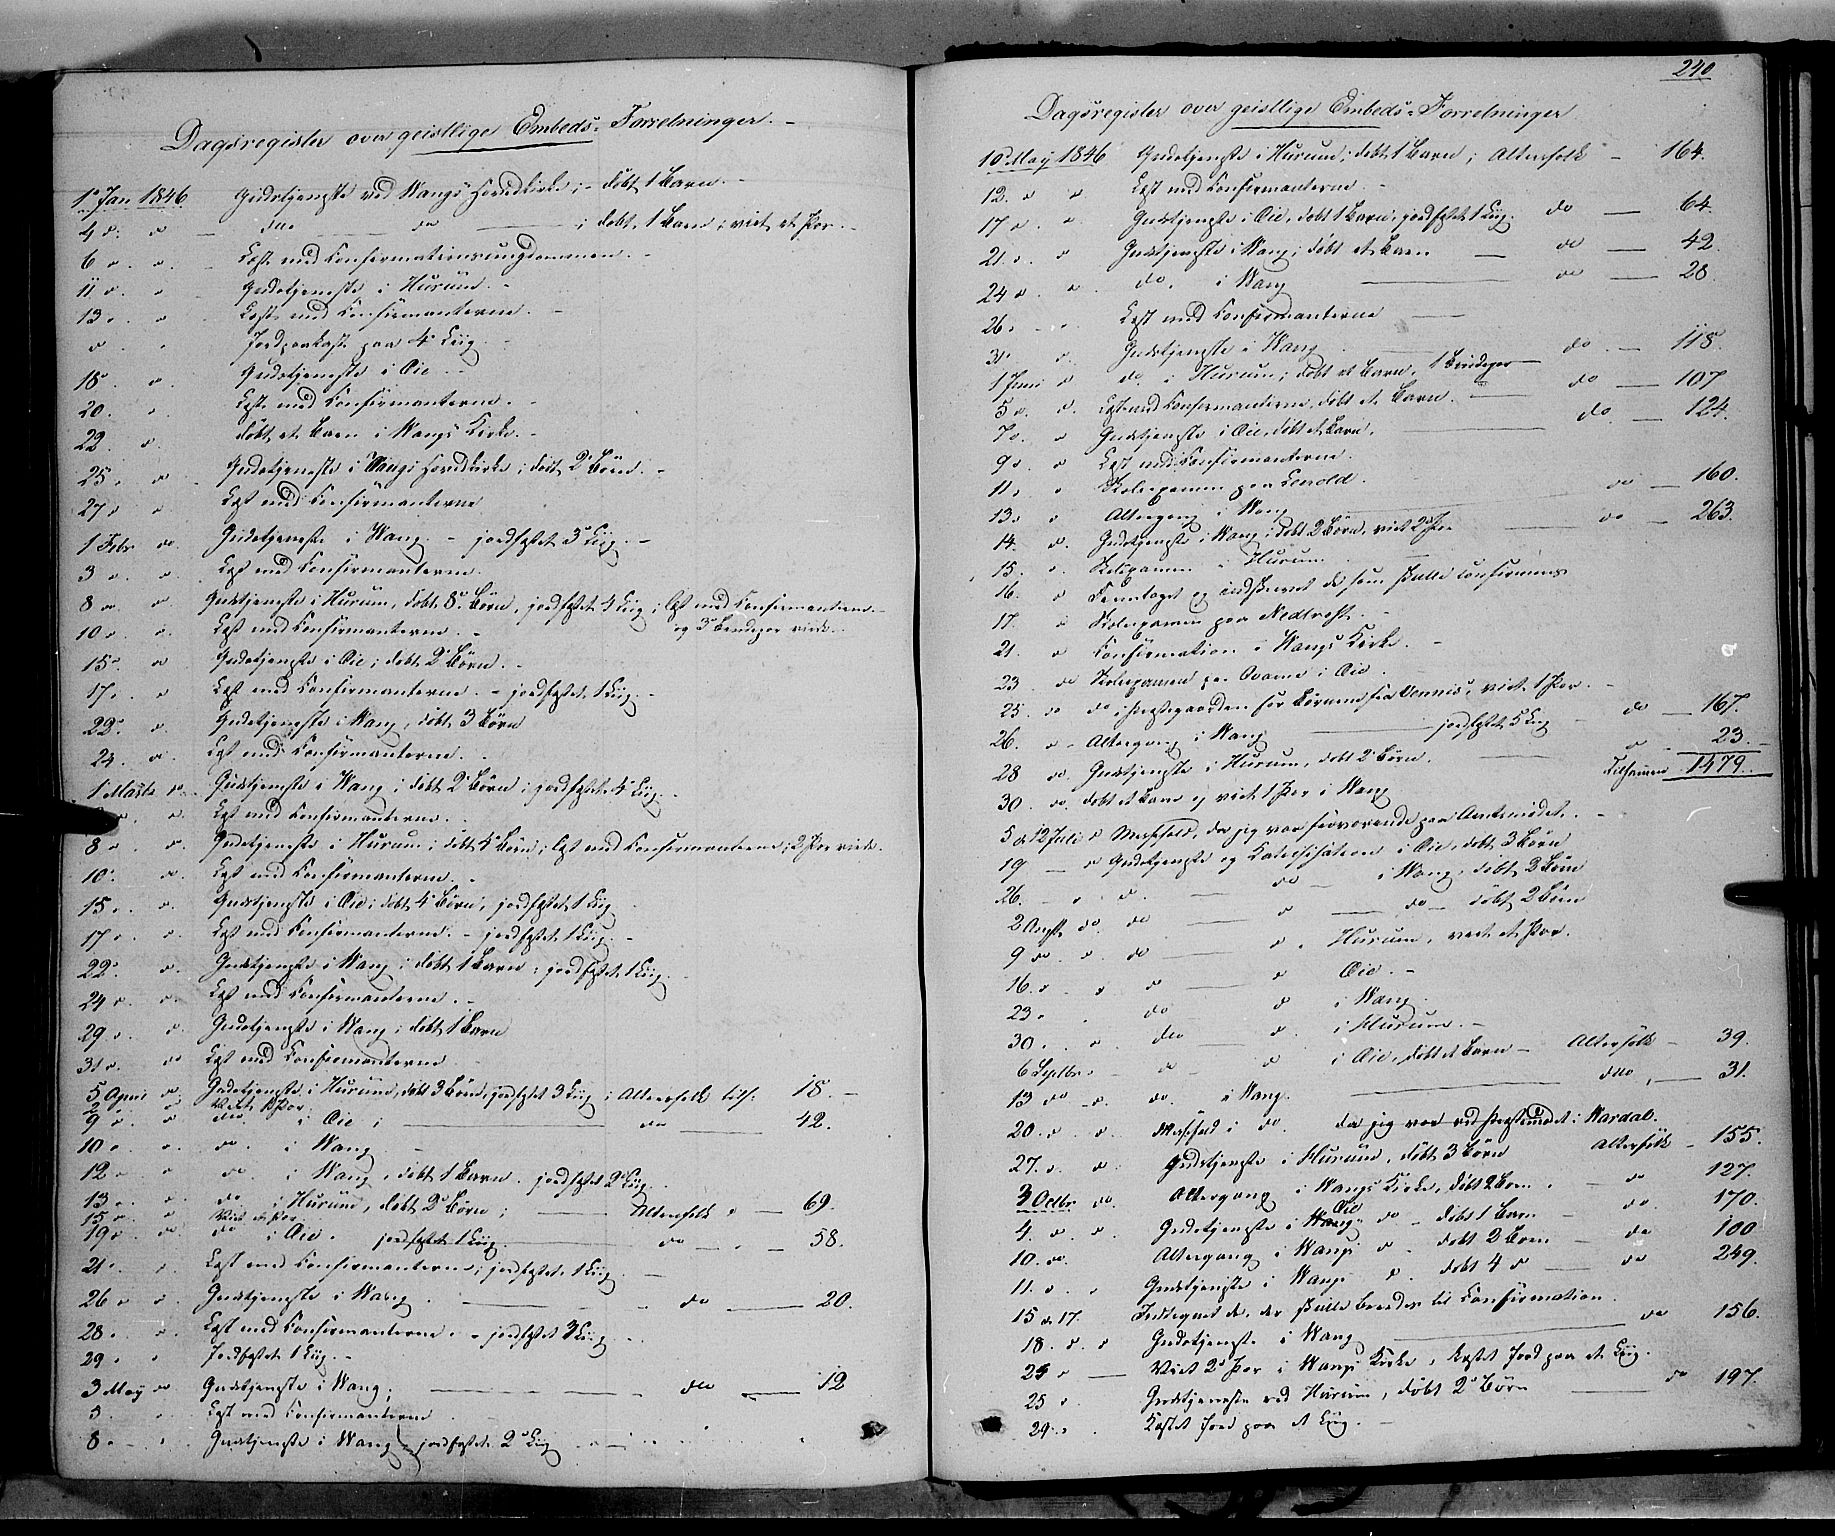 Dagsregister over geistlige Embeds-Forretninger.
1 Jan 1846 Gudstjeneste ved Wangs Hovedkirke; døbt 1 Barn.
4 do do do do; døbt 1 Barn; viet et Par.
6 Læst med Confirmationsungdommen.
11 Gudstjeneste i Hurum.
13 Læst med Confirmanterne.
Jordpaakast paa 4 Liig.
18 Gudstjeneste i Øie.
20 Læst med Confirmanterne.
22 døbt et Barn i Wangs Kirke.
25 Gudstjeneste i Wangs Hovedkirke; døbt 2 Börn.
27 Læst med Confirmanterne
1 Febr do Gudstjeneste i Wang. - jordfæstet 3 Liig.
3 Læst med Confirmanterne.
8 Gudstjeneste i Hurum, døbt 8 Börn, jordfæstet 4 Liig; læst med Confirmanterne
og 3 Brudepar viede.
10 Læst med Confirmanterne.
15 Gudstjeneste i Øie; døbt 2 Börn.
17 Læst med Confirmanterne. - jordfæstet 1 Liig.
22 Gudstjeneste i Wang, døbt 3 Börn
24 Læst med Confirmanterne.
1 Marts Gudstjeneste i Wang; døbt 2 Börn; jordfæstet 4 Liig.
Læst med Confirmanterne.
8 Gudstjeneste i Hurum; døbt 4 Börn; læst med Confirmanterne; 2 Par viede.
10 Læst med Confirmanterne.
15 Gudstjeneste i Øie; døbt 4 Börn, jordfæstet 1 Liig
17 Læst med Confirmanterne. - jordfæstet 1 Liig.
22 Gudstjeneste i Wang; døbt 1 Barn; jordfæstet 1 Liig.
24 Læst med Confirmanterne.
29 Gudstjeneste i Wang; døbt 1 Barn
31 Læst med Confirmanterne
5 April Gudstjeneste i Hurum, døbt 3 Börn, jordfæstet 3 Liig; Altersfolk 18.
2 Viet 1 Par
9 do i Øie; do 42.
10 do i Wang
12 do i Wang, døbt 1 Barn. jordfæstet 2 Liig.
13 do i Hurum, døbt 2 Börn; Altersfolk 69.
15 Viet et Par
19 do i Øie. jordfæstet 1 Liig. do 58.
21 Læst med Confirmanterne; jordfæstet 1 Liig.
26 Gudstjeneste i Wang. do 20.
28 Læst med Confirmanterne. - jordfæstet 3 Liig
29 Jordfæstet 1 Liig.
3 May do Gudstjeneste i Wang; do 12
5 Læst med Confirmanterne
8 Gudstjeneste i Wang; jordfæstet 2 Liig
240
Dagsregister over geistlige Embeds-Forretninger
10 May 1846 Gudstjeneste i Hurum; døbt 1 Barn; Altersfolk - 164.
12. Læst med Confirmanterne.
17 Gudstjeneste i Øie, døbt 1 Barn, jordfæstet 1 Liig. do 64.
21. Gudstjeneste i Wang; døbt et Barn do 42.
24 do. i Wang do 28.
26. Læst med Confirmanterne
31 Gudstjeneste i Wang do 118.
1 Juni do i Hurum; døbt et Barn, 1 Brudepar do 107
5 Læst med Confirmanterne, døbt et Barn.
7 Gudstjeneste i Øie, døbt et Barn. do 124.
9 Læst med Confirmanterne.
11 Skolexamen paa
13 Altergang i Wang do 160.
14. Gudstjeneste i Wang; døbt 2 Börn, viet 2 Par do 263.
15. Skolexamen i Hurum
16. og indskrevet de, som skulle confirmeres
17. Skolexamen paa
21. Confirmation i Wangs Kirke.
23 Skolexamen paa Qvame i Øie
25 do i Præstegaarden for Børnene fra Vennis, viet 1 Par.
26. Altergang i Wang jordfæstet 5 Liig do 167.
28 do. Gudstjeneste i Hurum, døbt 2 Börn. 23
30. do. døbt et Barn og viet 1 Par i Wang Tilsammen 1479.
5 & 12 Juli Messefald, da jeg var fraværende paa Amtmødet.
19 Gudstjeneste og Katechisation i Øie, døbt 3 Börn
26. do i Wang, døbt 3 Börn
2 Augst do do do døbt 2 Börn
9 do Hurum, viet et Par.
16. Øie.
23 do i Wang.
30. do i Hurum.
6 Septbr i Øie, døbt et Barn - Altersfolk - 39.
13 do do. i Wang. do 31.
20. Messefald i do. da jeg var ved Præstemødet i Wardal.
27. Gudstjeneste i Hurum, døbt 3 Börn Altersfolk - 155.
3 Octbr do. Altergang i Wangs Kirke, døbt 2 Børn. do 127.
4. Gudstjeneste i Wang Øie do - døbt 1 Barn do. 170.
10. do. Altergang i Wangs døbt 2 Børn do 100
11. Gudstjeneste i Wangs døbt 4 do do 249.
15 & 17. Indtegnet de, der skulle beredes til Confirmation.
18. Gudstjeneste i Wang do 156.
25 Viet 2 Par i Wangs Kirke, kastet Jord paa et Liig.
25 Gudstjeneste ved Hurum, døbt 2 Börn do 197.
29. Kastet Jord paa et Liig.